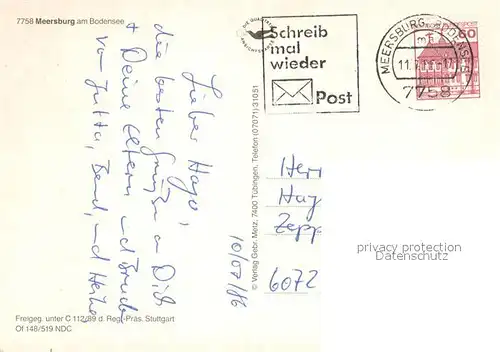 7758 Meersburg am Bodensee
Lieber Hajo,
die besten Grüße an Dich
+ Deine Eltern und Bruder
von Jutta, Bernd, und Heike
10/07/86
© Verlag Gebr. Metz, 7400 Tübingen, Telefon (07071) 31051
Freigeg. unter C 112/89 d. Reg.-Präs. Stuttgart
Of 148/519 NDC
Schreib
mal
wieder
Post
MEERSBURG, BODENSEE
7758
60
Herr
Zepp
6072
privacy protection